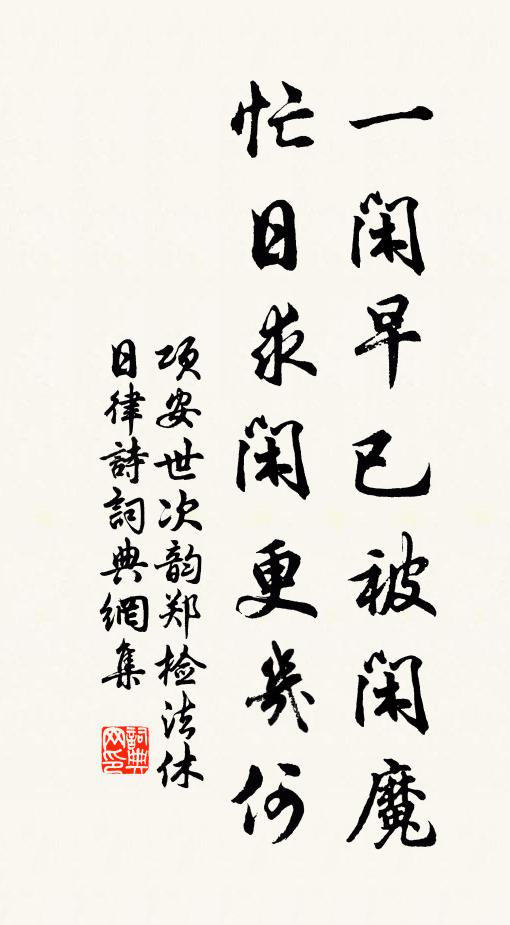 一闲早已被闲魔
忙日求闲更几何
项安世次韵郑检法休
日律詩詞典網集
詞典网印